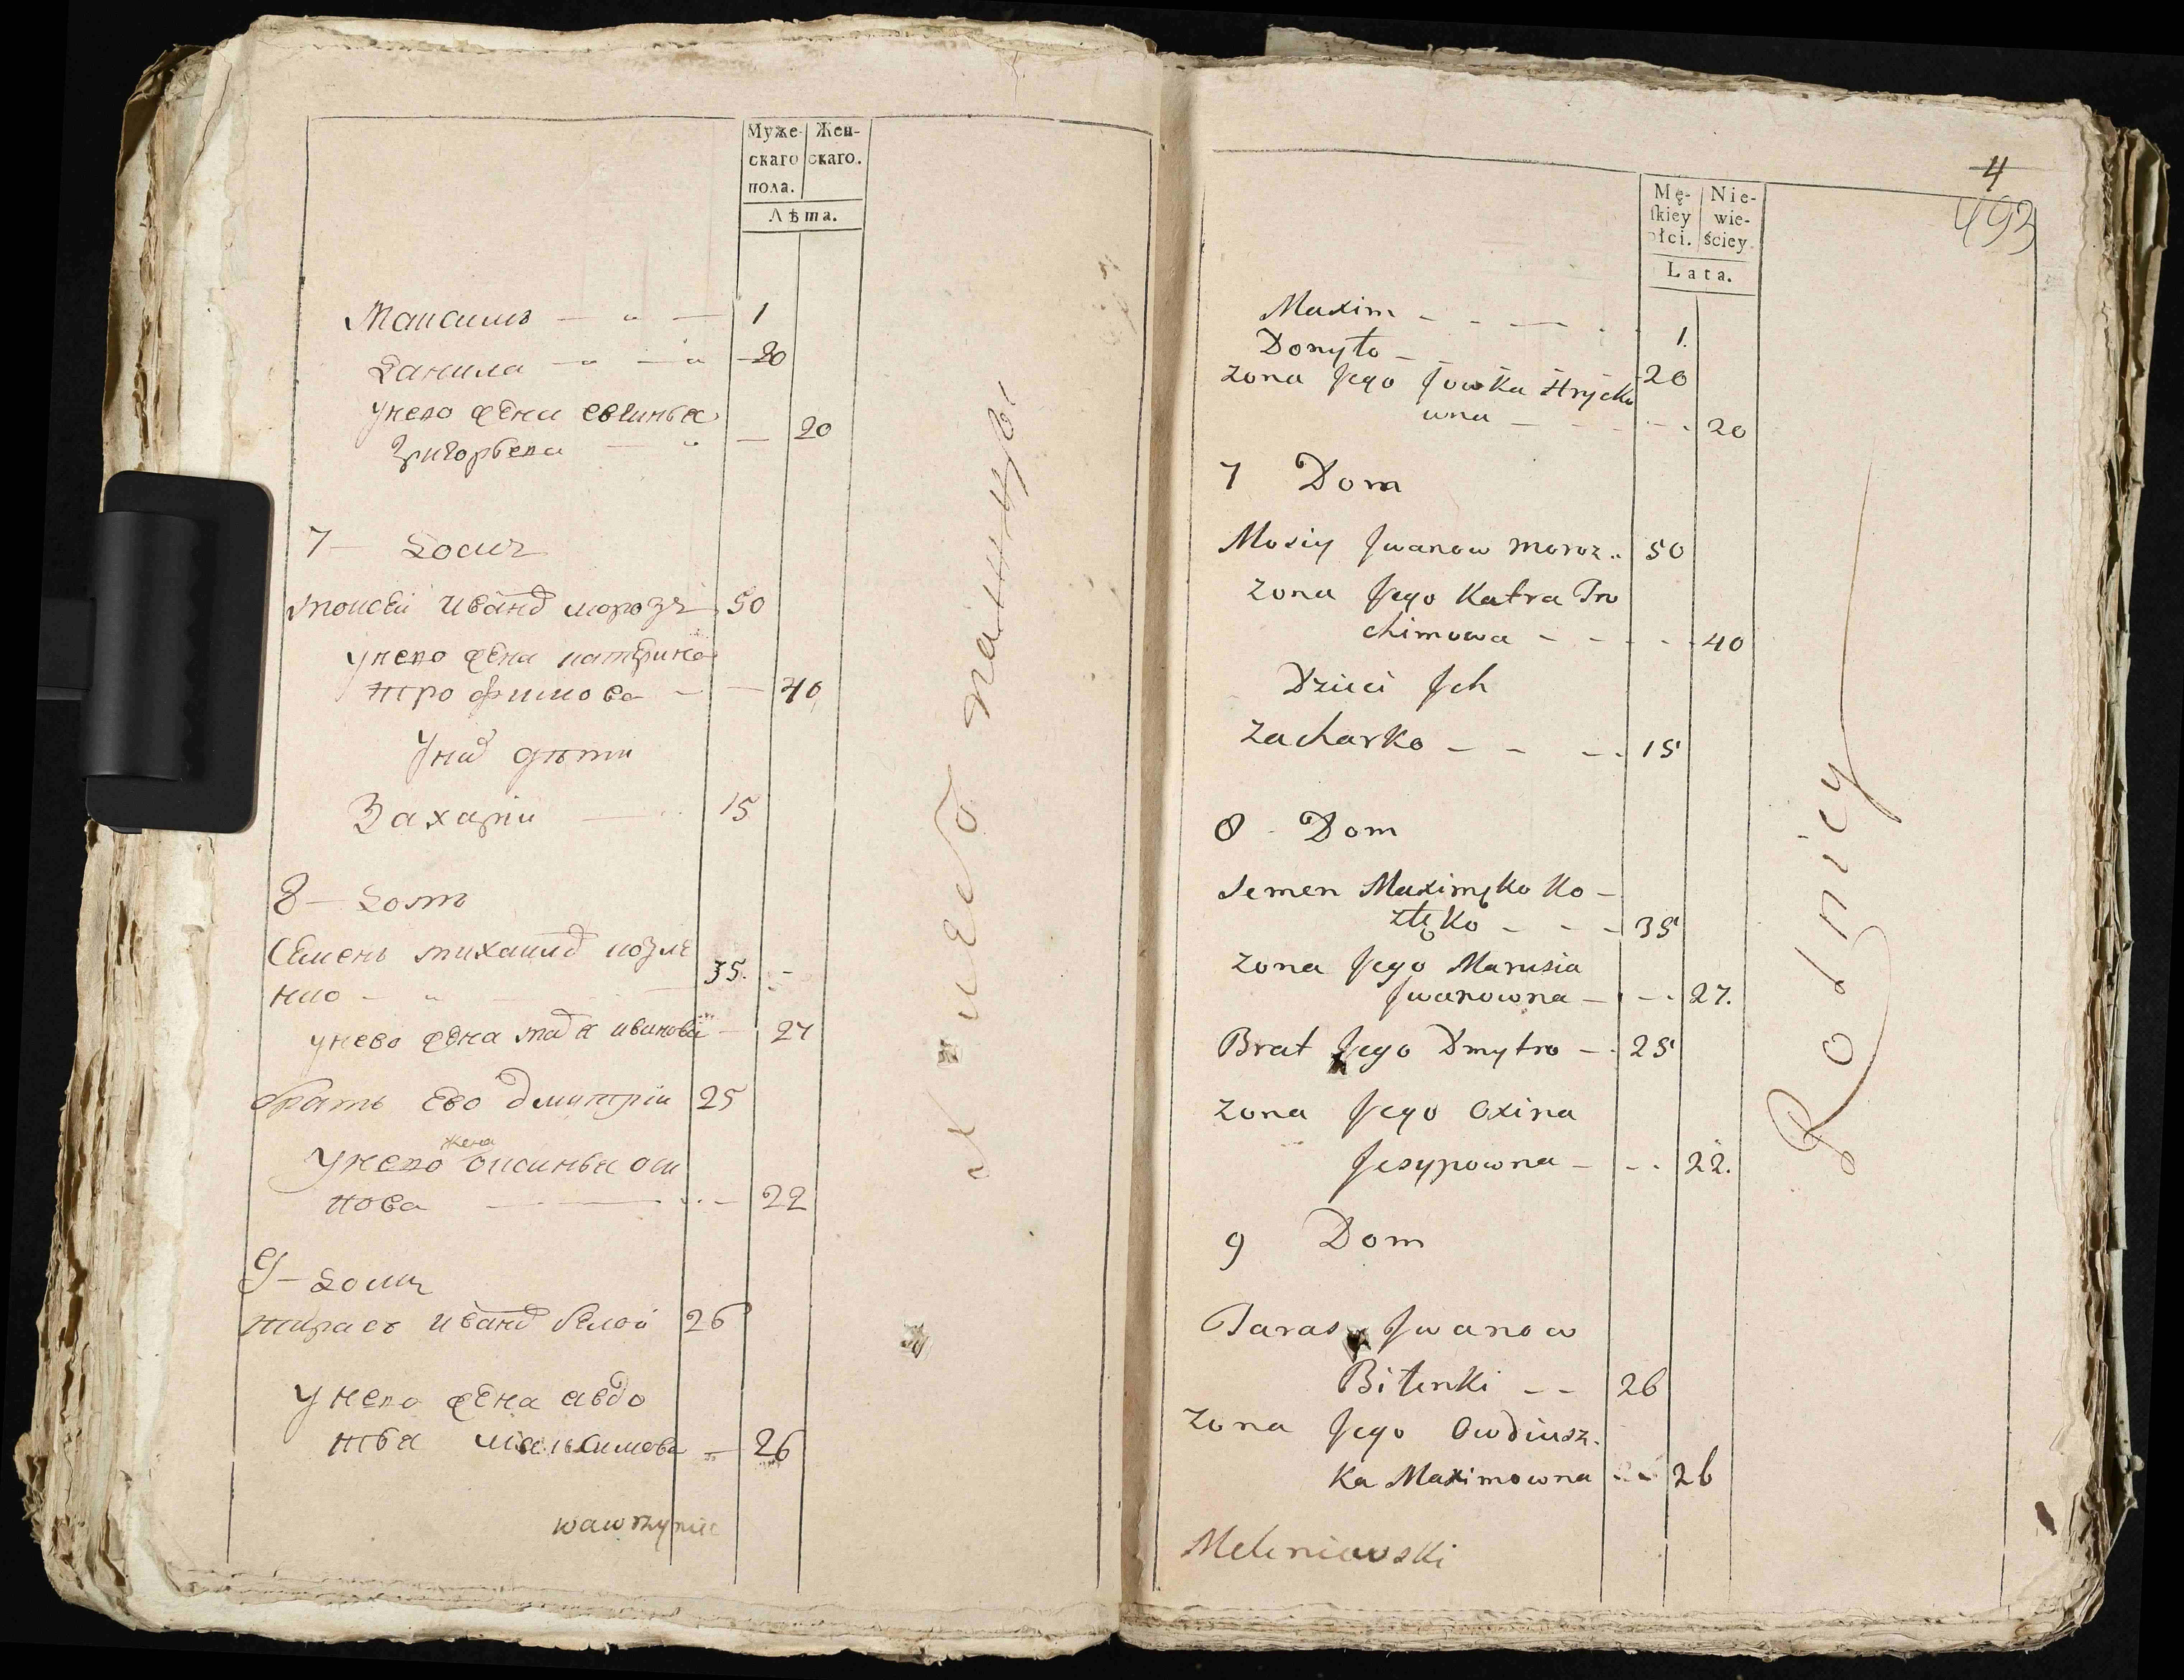 Муже- Жен-
скаго скаго.
пола.
Лѣта.
Максимъ — „ — 1
Данила — „ — „ — 20
унево жена евгинья
Григорьева — „ — 20
7 — Домъ
Моисей Иванов морозъ 50
унево жена катерина
трофимова — — 40
Уних дѣти
Захарiй — 15
8 — Домъ
Семенъ михайлов козле
нко — „ — 35. —
унево жена иванова — 27
братъ его дмитрiй 25
жена
Унево оксинья оси
пова — 22
9 — Домъ
тарасъ Иванов белой 26
унево жена авдо
тья максимова — 26
wawrzyniec
4
493
Mę- Nie-
ſkiey wie-
płci. ściey.
Lata.
Maxim - - — 1.
Donyło - 20
zona Jego Jowka Hrycko
wna - - - 20
7 Dom
Mosiy Jwanow moroz .. 50
zona Jego Katra Tro
chimowa - - - - 40
Dzieci Jch
zacharko - - - 15
8 Dom
Semen Maximęko Ko-
złęko - - - 35
zona Jego Marusia
Jwanowna - - - 27.
Brat Jego Dmytro - 25
zona Jego Oxina
Jesypowna - - - 22.
9 Dom
Taras Jwanow
Biłenki - - 26
zona Jego Owdiusz-
ka Maximowna - - 26
Rodnicy
Meleniowski